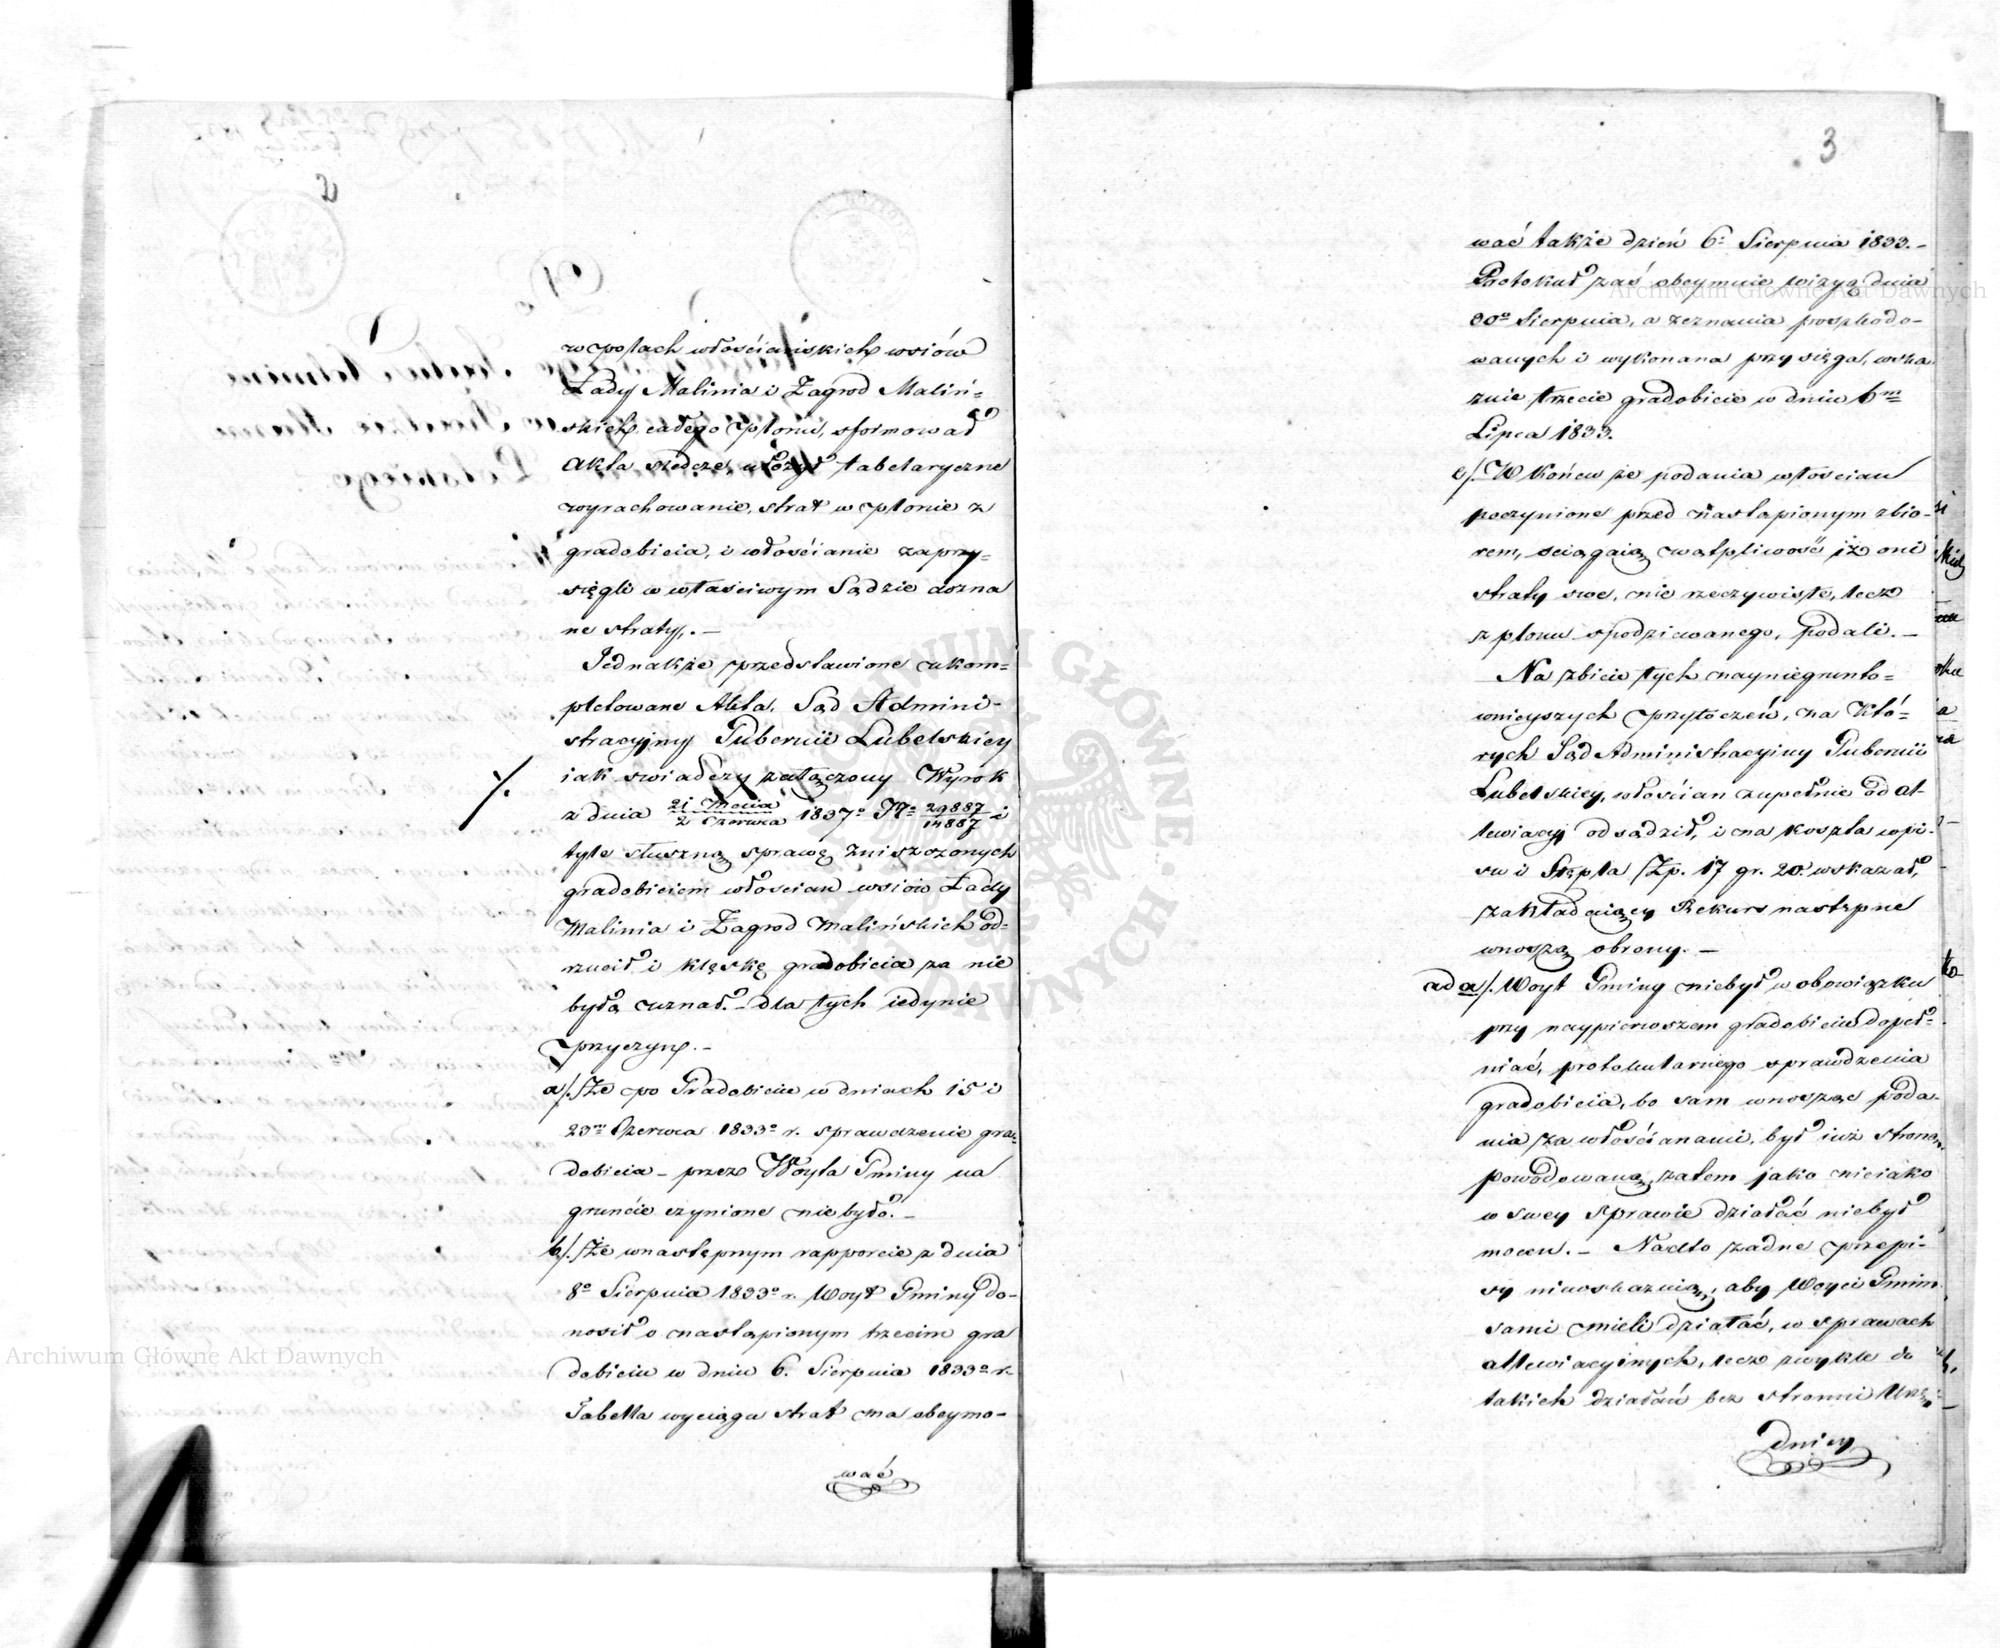 w polach włościańskich wsiów
Łady Malinia i Zagrod Maliń=
skich całego plonu, sformował
Akta śledcze, ułożył tabelaryczne
wyrachowanie, strat w plonie z
gradobicia, i włościanie zaprzy=
sięgli w właściwym Sądzie dozna
ne straty. —
Jednakże przedstawione ukom=
pletowane Akta, Sąd Admini-
stracyjny Gubernii Lubelskiey
iak świadczy załączony Wyrok
z dnia 21 Maia / 2 Czerwca 1837o No 29887/14887 i
tyle słuszną sprawę zniszczonych
gradobiciem włościan wsiów Łady
Malinia i Zagrod Malińskich od=
rzucił i klęskę gradobicia za nie
byłą uznał. – dla tych iedynie
przyczyn. –
a/. Że po Gradobiciu w dniach 15 i
23m Czerwca 1833o r. sprawdzenie gra=
dobicia – przez Woyta Gminy na
gruncie czynione niebyło. –
b/. Że w następnym rapporcie z dnia
8o Sierpnia 1833o r. Woyt Gminy do-
nosił o nastąpionym trzecim gra
dobiciu w dniu 6. Sierpnia 1833o r.
Tabella wyciąga strat ma obeymo-
wać
3
wać także dzień 6o Sierpnia 1833. –
Protokuł zaś obeymuie wizyą dnia
20o Sierpnia, a zeznania poszkodo-
wanych i wykonana przysięga, wska
zuie trzecie gradobicie w dniu 6m
Lipca 1833.
c/. W końcu że podania włościan
poczynione przed nastąpionym zbio-
rem, ściągaią wątpliwość iż oni
straty swe, nie rzeczywiste, lecz
z plonu spodziewanego, podali. –
Na zbicie tych nayniegrunto=
wnieyszych przytoczeń, na któ=
rych Sąd Administracyiny Gubernii
Lubelskiey, włościan zupełnie od al-
lewiacyi odsądził, i na koszta wpi-
su i Stępla Zp. 17 gr. 20. wskazał,
zakładaiący Rekurs następne
wnoszą obrony. –
ad a/. Woyt Gminy niebył w obowiązku
przy naypierwszem gradobiciu dopeł=
niać, protokularnego sprawdzenia
gradobicia, bo sam wnosząc poda-
nia za włościanami, był iuż stroną
powodowaną, zatem jako nieiako
w swey sprawie działać niebył
mocen. – Nadto żadne przepi-
sy niewskazuią, aby Woyci Gmin
sami mieli działać, w sprawach
allewiacyinych, lecz zwykle do
takich działań bez stronni Urzę-
dnicy
Archiwum Główne Akt Dawnych
Archiwum Główne Akt Dawnych
ARCHIWUM GŁÓWNE AKT DAWNYCH